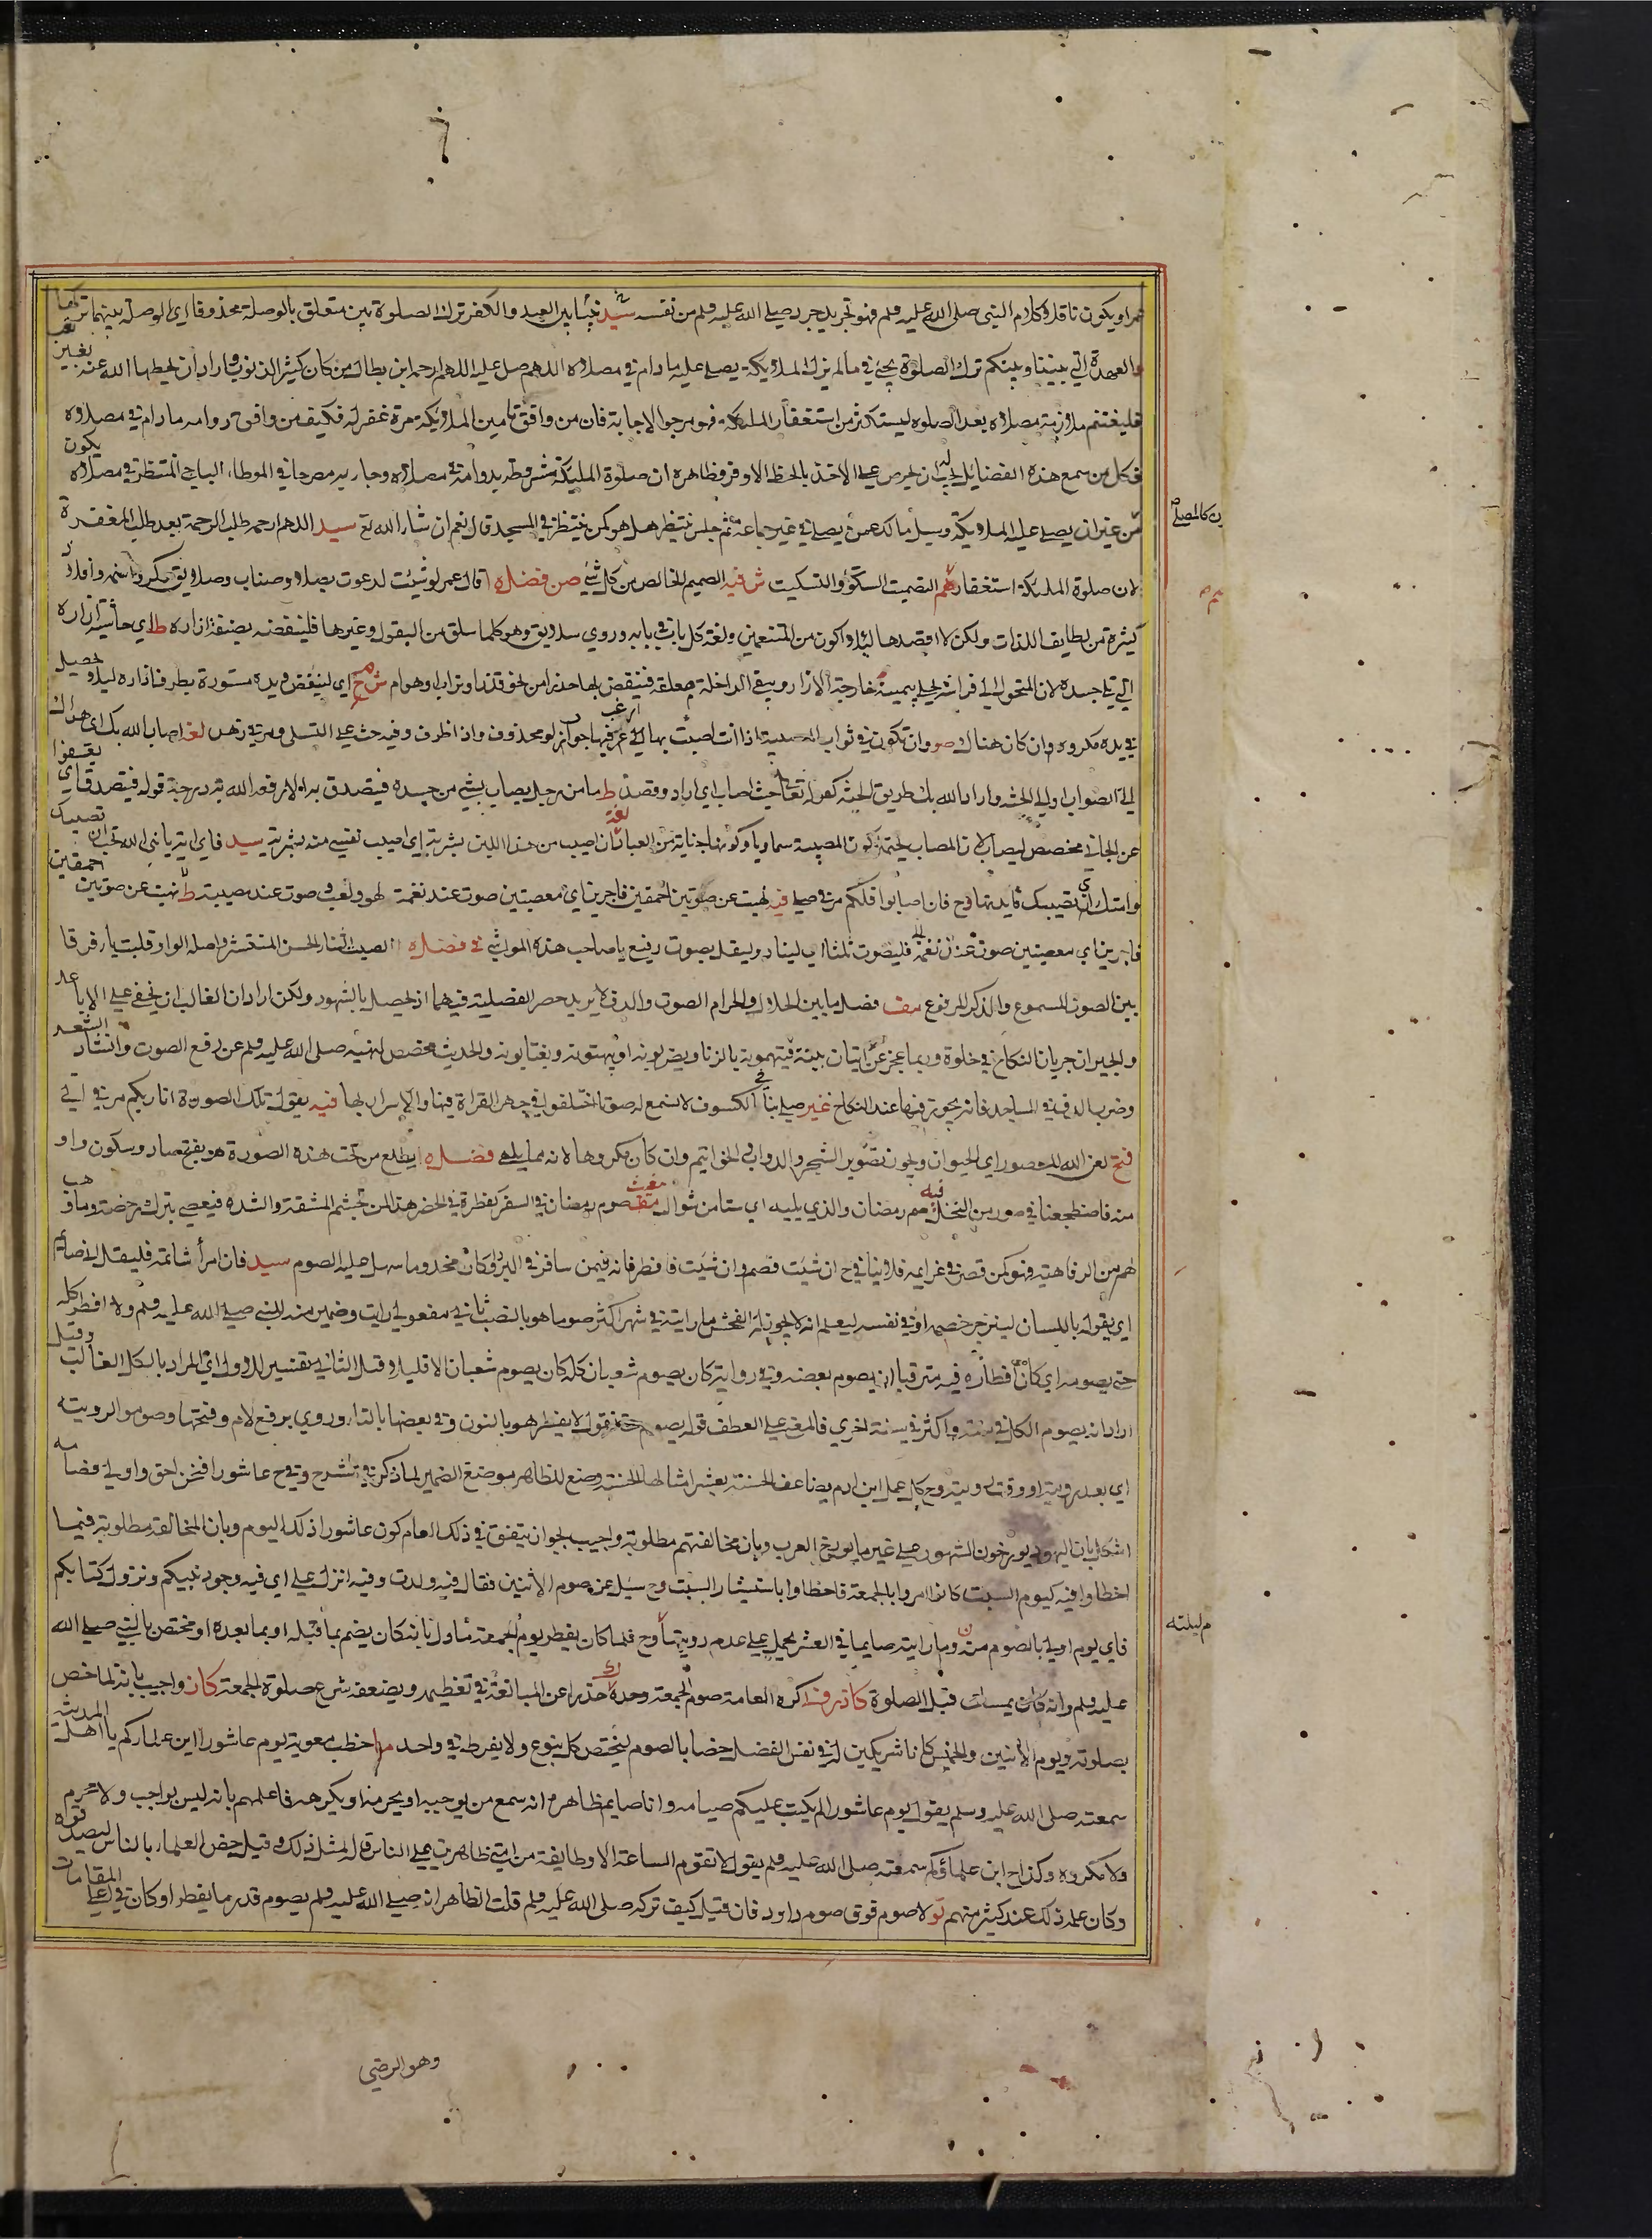 عمر او يكون ناقلا وكلام النبي صلى الله عليه ولم فهو تجريد جرد صلى الله عليه ولم من نفسه سيد نبيا بين العبد والكفر ترك الصلوة بين متعلق بالوصلة محذوفا اي الوصلة بينهما تركها
والعهدة التي بيننا وبينكم ترك الصلوة يجئ في ما لم يزل الملايكة يصلي عليه ما دام في مصلاه اللهم صل عليه اللهم ارحمه ابن بطال من كان كثير الذنوب واراد ان يحطها الله عنه بغير تعب
فليغتنم ملازمة مصلاه بعد الصلوه ليستكثر من استغفار الملئكة فهو مرجو الاجابة فان من وافق تامين الملايكة مرة غفر له فكيف من وافق دوامه ما دام في مصلاه
فكل من سمع هذه الفضايل يجب له ان يحرص على الاخذ بالحظ الاوفر وظاهره ان صلوة المليكة مشروطة بدوامه في مصلاه وجا يريد مصرحا في الموطا الباجي المنتظر في مصلاه يكون
من غير ان يصلي عليه الملايكة وسيل مالك عمن يصلي في غير جماعة ثم جلس ينتظر هل هو كمن ينتظر في المسجد قال نعم ان شاء الله تع سيد اللهم ارحمه طلب الرحمة بعد طلب المغفرة
لان صلوة المليكة استغفار لهم التصميت السكوت والتسكيت ش فيه الصميم الخالص من كل شئ صن فضله قال عمر لو شيت لدعوت بصلا وصناب وصلايق وكراكر واسنمة وافلاذ
كثيرة من لطايف اللذات ولكن لا اقصدها ليلا اكون من المتنعمين ولغة كل بابت في بابه وروي سلايق وهو كلما سلق من البقول وغيرها فلينفضه بصنفة ازاره ط اي حاشية ازاره
التي تلي جسده لان المتحول الى فراشه يحل بيمينه خارجة الازار ويبقى الداخلة معلقة فينفض بها حذرا من نحو قذذا وتراب او هوام ش ح اي لينفض ويده مستورة بطرف ازاره ليلا يحصل
في يده مكروه وان كان هناك صو وان تكون في ثواب المصيبة اذا انت اصبت بها ارغب فيها جواب لو محذوف واذ اظرف وفيه حث على التسلي ومر في زهد لغة اصاب الله بك اي هداك
الى الصواب او الى الجنة واراد الله بك طريق الجنة كقوله تعالى حيث اصاب اي اراد وقصد ط ما من رجل يصاب بشئ من جسده فيتصدق به الا رفعه الله به درجة قوله فيتصدق اي يعفوا
عن الجاني مخصص ليصاب لان المصاب يحتمل كون المصيبة سماويا وكونها جناية من العباد كان اصيب من هذا اللبن بشربة اي اصيب نفسي منه بشربة سيد فاي ارادة يا نبي الله تحب ان تصيبك
وامتك اي تصيبك فايدتها ح فان اصابوا قلكم مر في صلي فيه نهيت عن صوتين احمقين فاجرين اي معصيتين صوت عند نغمة لهو ولعب وصوت عند مصيبة ط نهيت عن صوتين احمقين
فاجرين اي معصيتين صوت عند نغمة فليصوت ثلثا اي لينادي وليقل بصوت رفيع يا صاحب هذه المواشي في فضله الصيت الثناء الحسن المنتشر واصله الواو قلبت ياء فرقا
بين الصوت المسموع والذكر المرفوع مف فصل ما بين الحلال والحرام الصوت والدف لا يريد حصر الفصل فيهما اذ يحصل بالشهود ولكن اراد ان الغالب ان يخفى على الاباعد
والجيران جريان النكاح في خلوة وربما عجز عن اتيان بينة فيتهمونه بالزنا ويضربونه او يهتونه ويغتابونه والحديث مخصص لنهيه صلى الله عليه ولم عن رفع الصوت وانشاد الشعر
وضرب الدف في المساجد فانه يجوز فيها عند النكاح غير صلى بنا في الكسوف لا نسمع له صوتا اختلفوا في جهر القراة فيها والاسرار بها فيه يقول تلك الصورة انا ربكم مر في اتي
فتح لعن الله المصور اي الحيوان ويجوز تصوير الشجر والدواب في الخواتيم وان كان مكروها لانه مما يلهي فضله يطلع من تحت هذه الصورة هو بفتح صاد وسكون واو
منه فاضطجعنا في صور من النخل فيه صم رمضان والذي يليه اي ستا من شوال مغيث صوم رمضان في السفر كفطره في الحضر هذا لمن تجشم المشقة والشده فيعصي بترك رخصته وما وهب
لهم من الرفاهية فهو كمن قصر في عزايمه فلا ينافي ح ان شيت فصم وان شيت فافطر فانه فيمن سافر في البر وكان مخدوما سهل عليه الصوم سيد فان امرأ شاتمه فليقل اني صايم
اي يقوله باللسان لينزجر خصمه او في نفسه ليعلم انه لا يجوز له الفحش ما رايته في شهر اكثر صوما هو بالنصب ثاني مفعولي رايت وضمير منه للنبي صلى الله عليه ولم ولا افطر كله
حتى يصومه اي كان افطاره فيه مترقبا ان يصوم بعضه وفي رواية كان يصوم شعبان كله كان يصوم شعبان الا قليلا وقيل الثاني تفسير للاول اي المراد بالكل الغالب وقيل
اراد انه يصوم الكل في سنة واكثر في سنة اخرى فالمعنى على العطف قوله يصوم حتى نقول لا يفطر هو بالنون وفي بعضها بالتاء وروي برفع لام وفتحها وصوموا لرويته
اي بعد رويته او وقت رويته وح كل عمل ابن ادم يضاعف الحسنة بعشر امثالها الحسنة وضع للظاهر موضع الضمير لما ذكر في شرح وفي ح عاشورا فنحن احق واولى فصامه
اشكل بان اليهود يورخون الشهور على غير ما يورخ العرب وبان مخالفتهم مطلوبة واجيب لجواز ان يتفق في ذلك العام كون عاشورا ذلك اليوم وبان المخالفة مطلوبة فيما
اخطاوا فيه كيوم السبت كانوا امروا بالجمعة فاخطاوا باستيثار السبت وح سيل عن صوم الاثنين فقال فيه ولدت وفيه انزل علي اي فيه وجود نبيكم ونزول كتابكم
فاي يوم اولى بالصوم منه وما رايته صايما في العشر يحمل على عدم رويتها وح فلما كان يفطر يوم الجمعة ماول بانه كان يضم بما قبله او بما بعده او مختص بالنبي صلى الله
عليه ولم وانه كان يمسك قبل الصلوة كا زر وا كره العامة صوم الجمعة وحده حذرا عن المبالغة في تعظيمه ويضعفه شرع صلوة الجمعة كان واجيب بانه لما خص
بصلوته ويوم الاثنين والخميس كانا شريكين له في نفس الفضل خصا بالصوم ليختص كل بنوع ولا يفرط في واحد من خطب معوية يوم عاشورا اين علماركم يا اهل المدينة
سمعته صلى الله عليه وسلم يقول يوم عاشورا لم يكتب عليكم صيامه وانا صايم ظاهره انه سمع من يوجبه او يحرمه او يكرهه فاعلمهم بانه ليس بواجب ولا محرم
ولا مكروه وكذا ح اين علماؤكم سمعته صلى الله عليه ولم يقول لا تقوم الساعة الا وطايفة من امتي ظاهرين على الناس قاله لمثل ذلك وقيل حض العلماء بالناس ليصدقوه
وكان علم ذلك عند كثير منهم نو لا صوم فوق صوم داود فان قيل كيف تركه صلى الله عليه ولم قلت الظاهر انه صلى الله عليه ولم يصوم قدر ما يفطر او كان في اعلى المقامات
ن كالمصلي
م ليلته
وهو الرضي